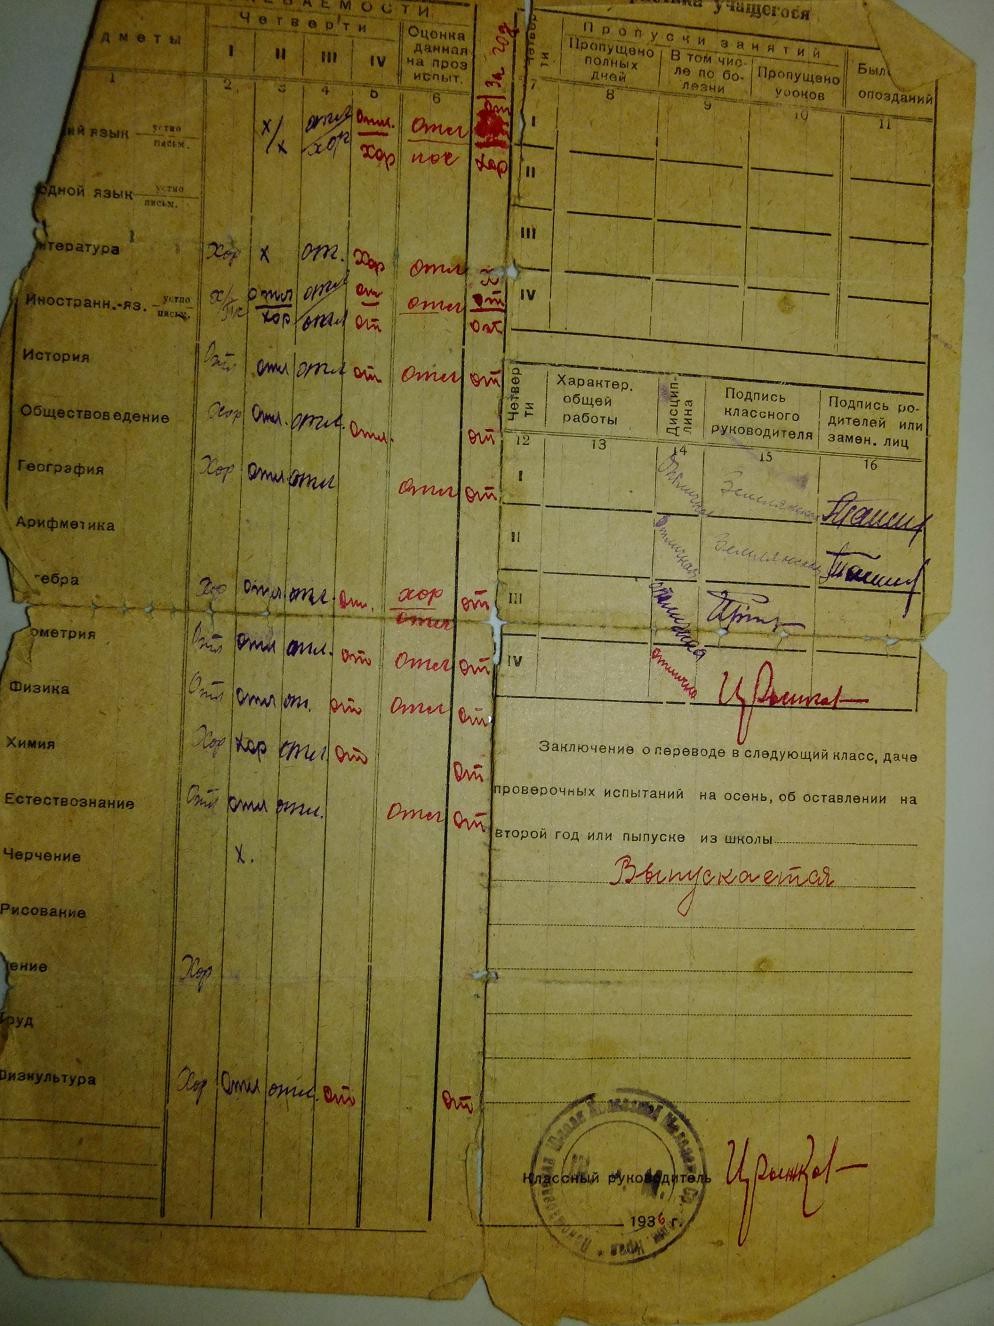 ЕВАЕМОСТИ
дметы
Четверти
I II III IV
Оценка
данная
на проз
испыт.
За год
1 2 3 4 5 6
ий язык устно письм. х/х отл хор отл. хор отл пос хор
одной язык устно письм.
итература Хор х отл. хор отл
Иностранн.-яз. устно письм. х/ отл хор отл отл от от отл от от
История Отл отл отл от отл от
Обществоведение Хор отл. отл. отл. от
География Хор отл отл отл от
Арифметика
гебра Хор отл отл. отл. хор отл от
ометрия Отл отл отл. от отл от
Физика Отл отл от. от отл от
Химия Хор хор отл от от
Естествознание Отл отл отл. отл от
Черчение х.
Рисование
ение Хор
Труд
Физкультура Хор отл отл. от от
учащегося
Четверти
Пропуски занятий
Пропущено
полных
дней
В том чис-
ле по бо-
лезни
Пропущено
уроков
Был
опозданий
7 8 9 10 11
I
II
III
IV
Четверти
Характер.
общей
работы
Дисцип-
лина
Подпись
классного
руководителя
Подпись ро-
дителей или
замен. лиц
12 13 14 15 16
I Отличная
II Отличная
III отличная
IV отлично
Заключение о переводе в следующий класс, даче
проверочных испытаний на осень, об оставлении на
второй год или выпуске из школы
Выпускается
Классный руководитель
1936 г.